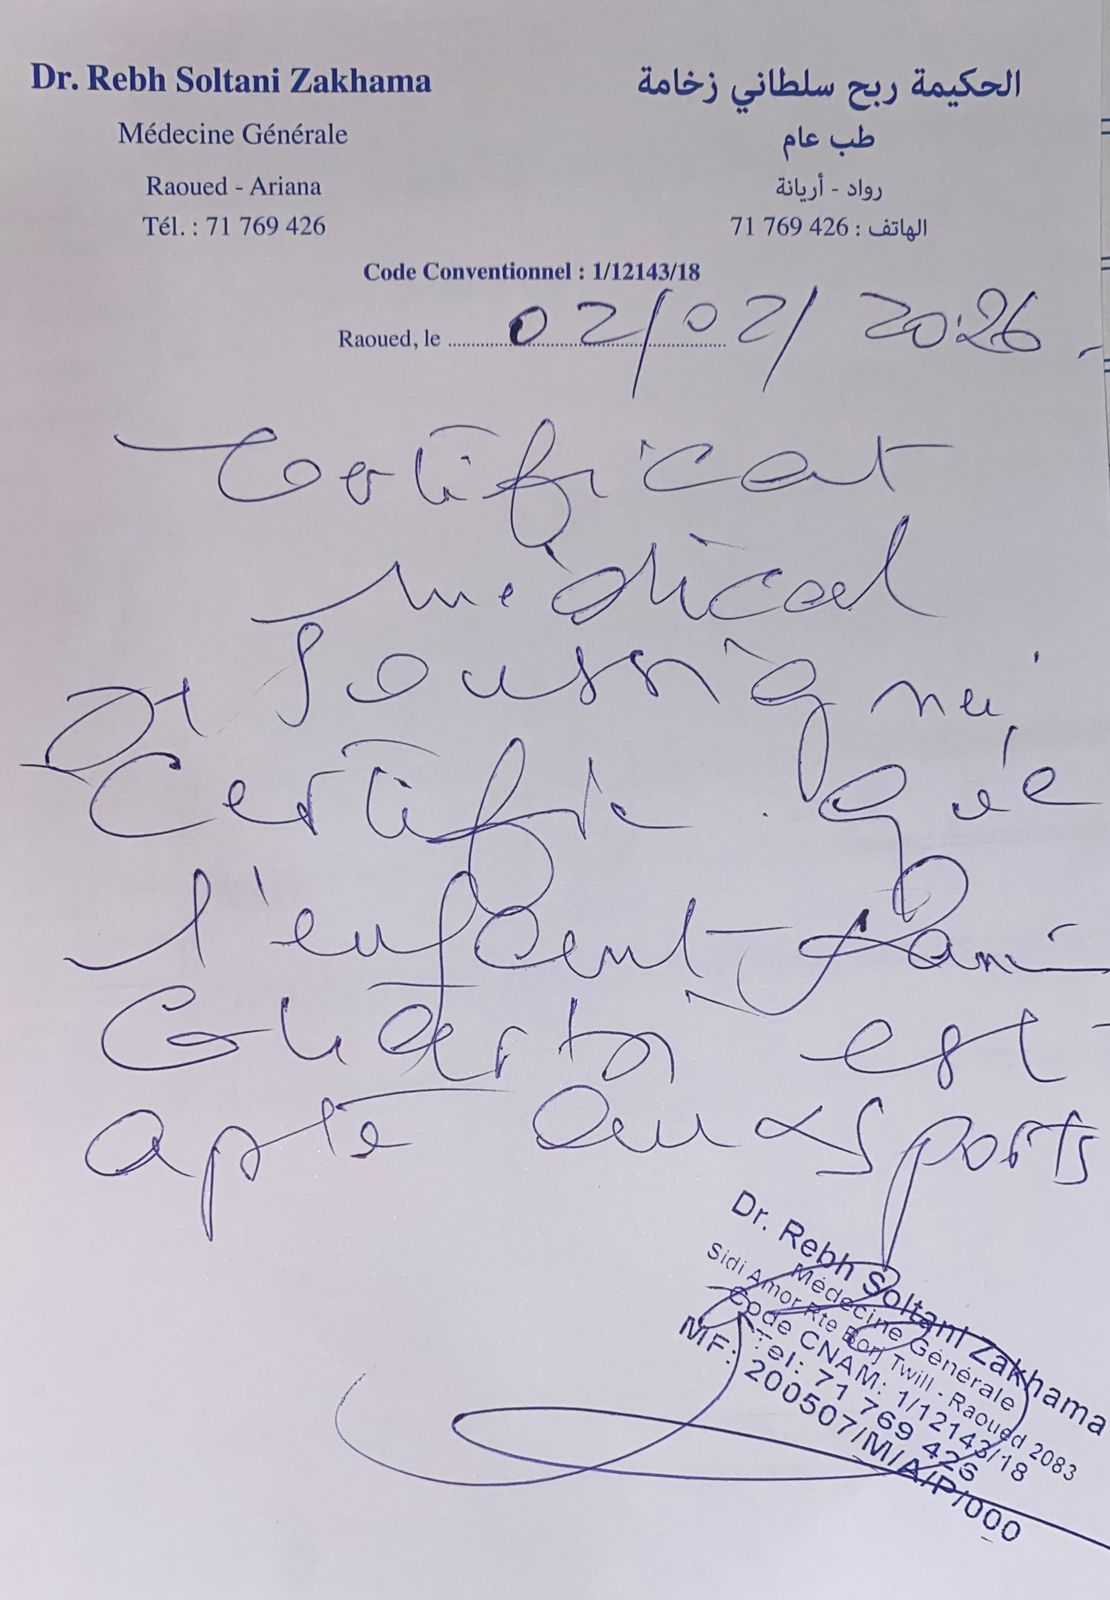 Dr. Rebh Soltani Zakhama
Médecine Générale
Raoued - Ariana
Tél. : 71 769 426
الحكيمة ربح سلطاني زخامة
طب عام
رواد - أريانة
الهاتف : 426 769 71
Code Conventionnel : 1/12143/18
Raoued, le 02/02/2026
Certificat
médical
soussigné
Certifie que
l'enfant
est
apte aux sports
Dr. Rebh Soltani Zakhama
Médecine Générale
Sidi Amor Rte Borj Twill - Raoued 2083
Code CNAM: 1/12143/18
Tel: 71 769 426
MF: 200507/M/A/P/000